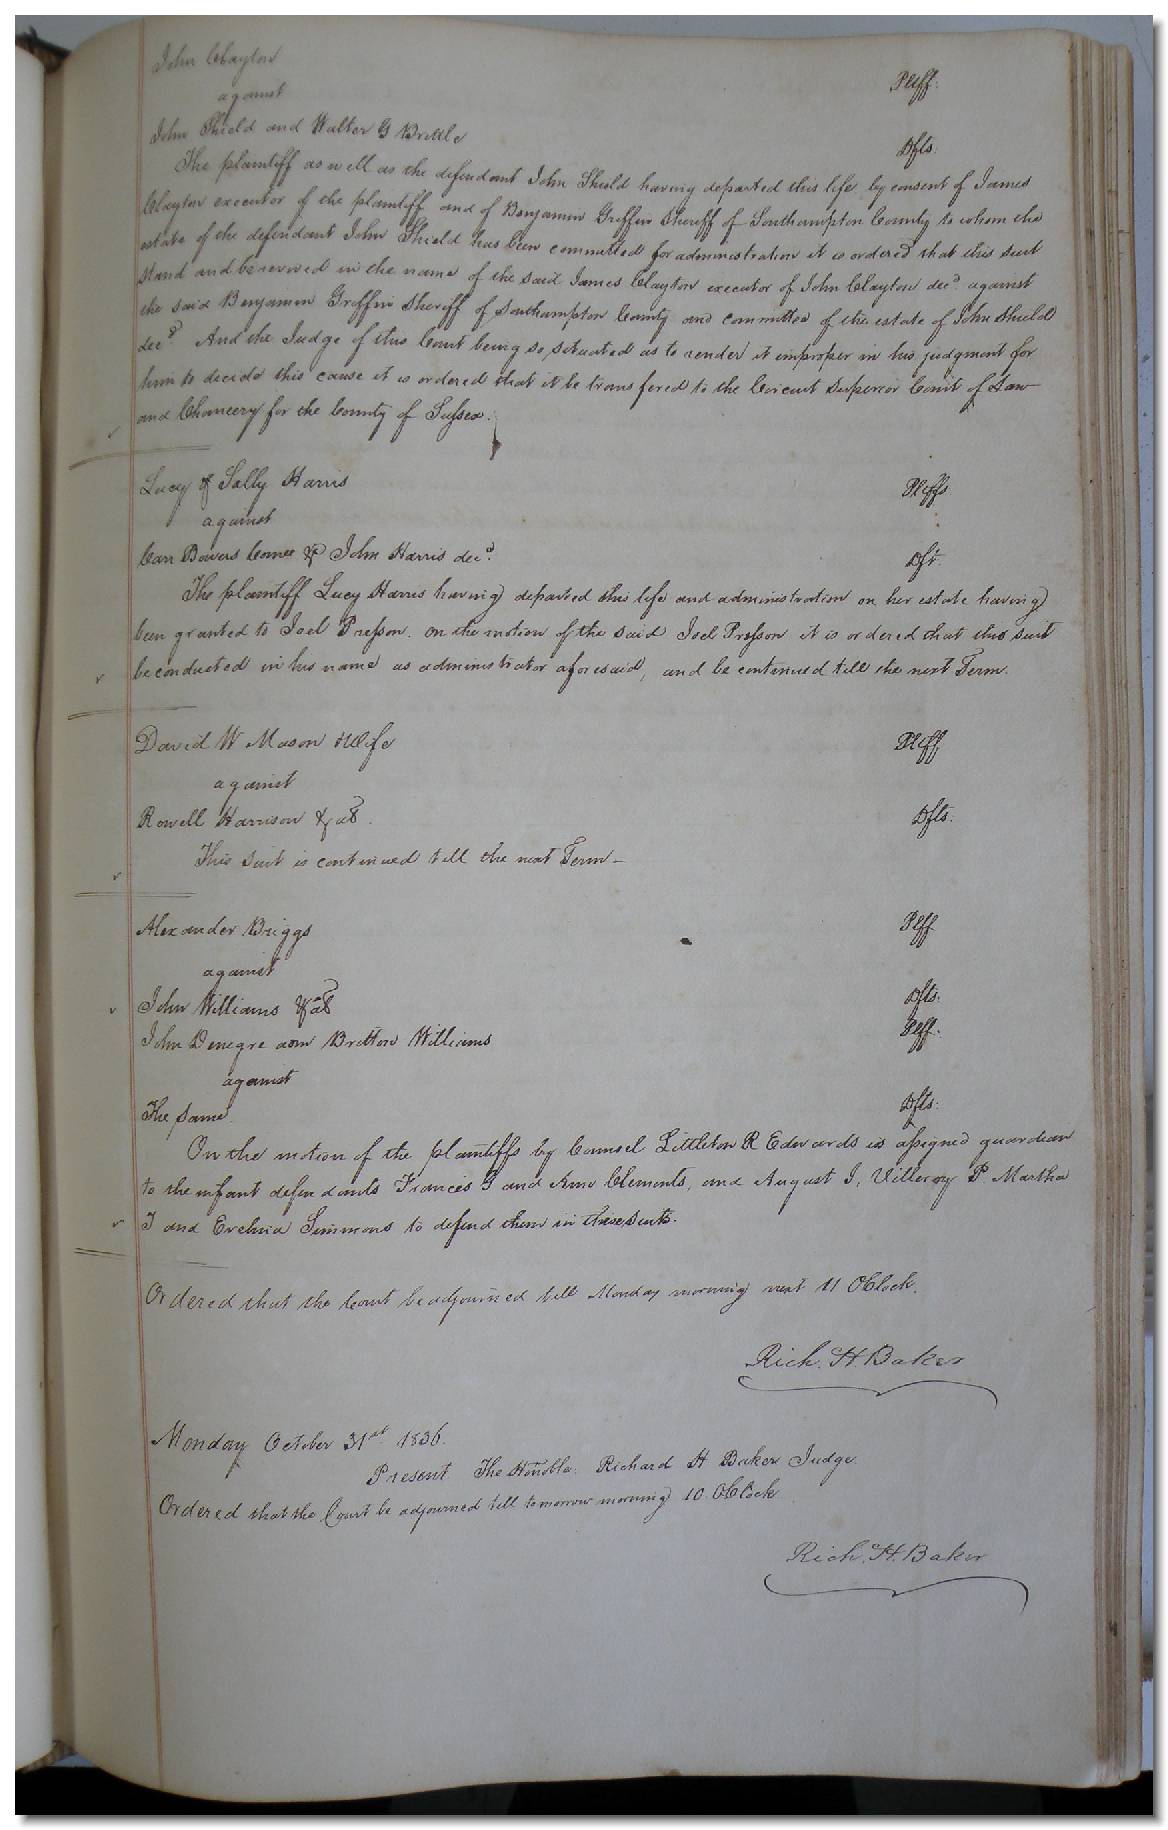 John Clayton Pltff.
against
John Shield and Walter G Brittle Dfts.
The plaintiff as well as the defendant John Shield having departed this life, by consent of James
Clayton executor of the plaintiff and of Benjamin Griffin Sheriff of Southampton County to whom the
estate of the defendant John Shield has been committed for administration it is ordered that this suit
stand and be revived in the name of the said James Clayton executor of John Clayton decd. against
the said Benjamin Griffin Sheriff of Southampton County and committee of the estate of John Shield
decd. And the Judge of this Court being so situated as to render it improper in his judgment for
him to decide this cause it is ordered that it be transfered to the Circuit Superior Court of Law
and Chancery for the County of Sussex.
Lucy & Sally Harris Pltffs
against
Carr Bowers Comee &c John Harris decd. Dft.
The plaintiff Lucy Harris having departed this life and administration on her estate having
been granted to Joel Presson. on the motion of the said Joel Presson it is ordered that this suit
be conducted in his name as administrator aforesaid, and be continued till the next Term.
David W Mason & Wife Pltff
against
Rowell Harrison & als. Dfts.
This suit is continued till the next Term—
Alexander Briggs Pltff
against
John Williams & als Dfts.
John Denegre adm Britton Williams Pltff.
against
The same Dfts.
On the motion of the plaintiffs by Counsel Littleton R Edwards is assigned guardian
to the infant defendants Frances G and Ann Clements, and August J, Villeroy P Martha
J and Evelina Simmons to defend them in these suits.
Ordered that the Court be adjourned till Monday morning next 11 OClock.
Rich. H. Baker
Monday October 31st. 1836.
Present The Honoble. Richard H Baker Judge.
Ordered that the Court be adjourned till tomorrow morning 10 OClock
Rich. H. Baker